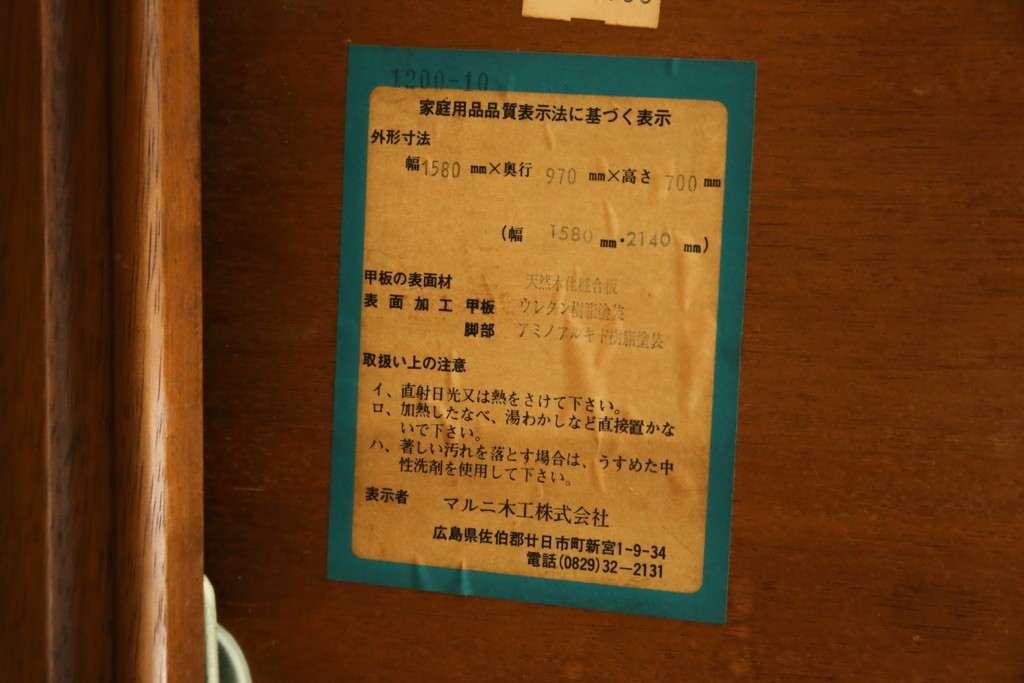 1200-10
家庭用品品質表示法に基づく表示
外形寸法
幅1580 mm×奥行 970 mm×高さ 700 mm
(幅 1580 mm・2140 mm)
甲板の表面材 天然木化粧合板
表面加工 甲板 ウレタン樹脂塗装
脚部 アミノアルキド樹脂塗装
取扱い上の注意
イ、直射日光又は熱をさけて下さい。
ロ、加熱したなべ、湯わかしなど直接置かな
いで下さい。
ハ、著しい汚れを落とす場合は、うすめた中
性洗剤を使用して下さい。
表示者 マルニ木工株式会社
広島県佐伯郡廿日市町新宮1-9-34
電話(0829)32―2131